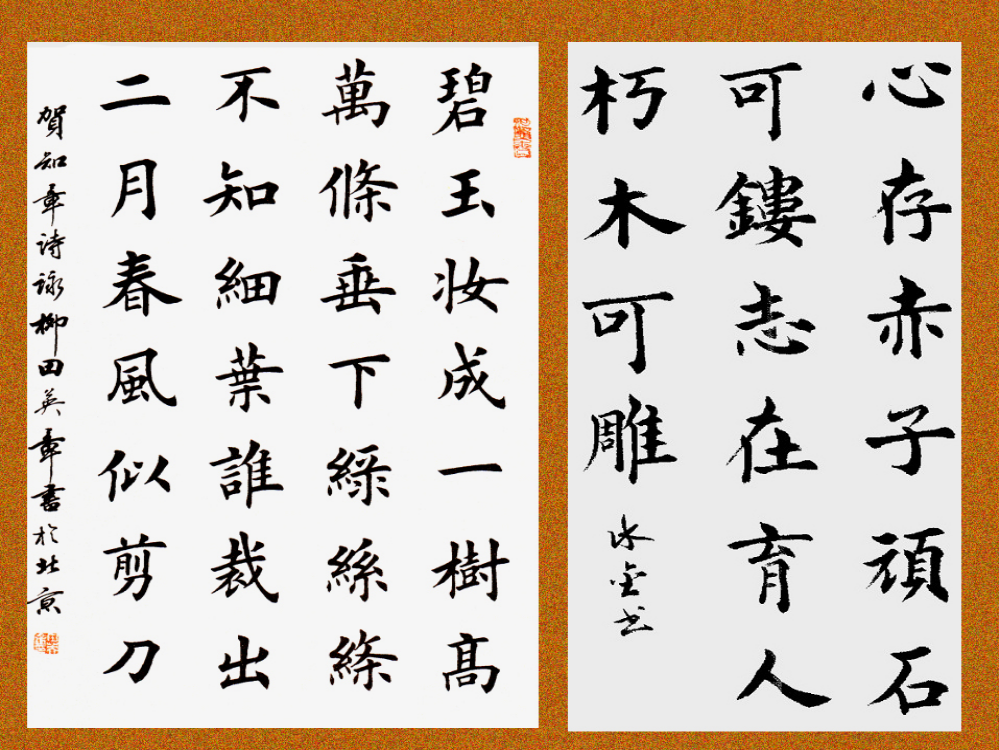 碧玉妆成一樹高
萬條垂下綠絲絛
不知細葉誰裁出
二月春風似剪刀
賀知章詩詠柳田英章書於北京
心存赤子頑石
可鏤志在育人
朽木可雕
金书